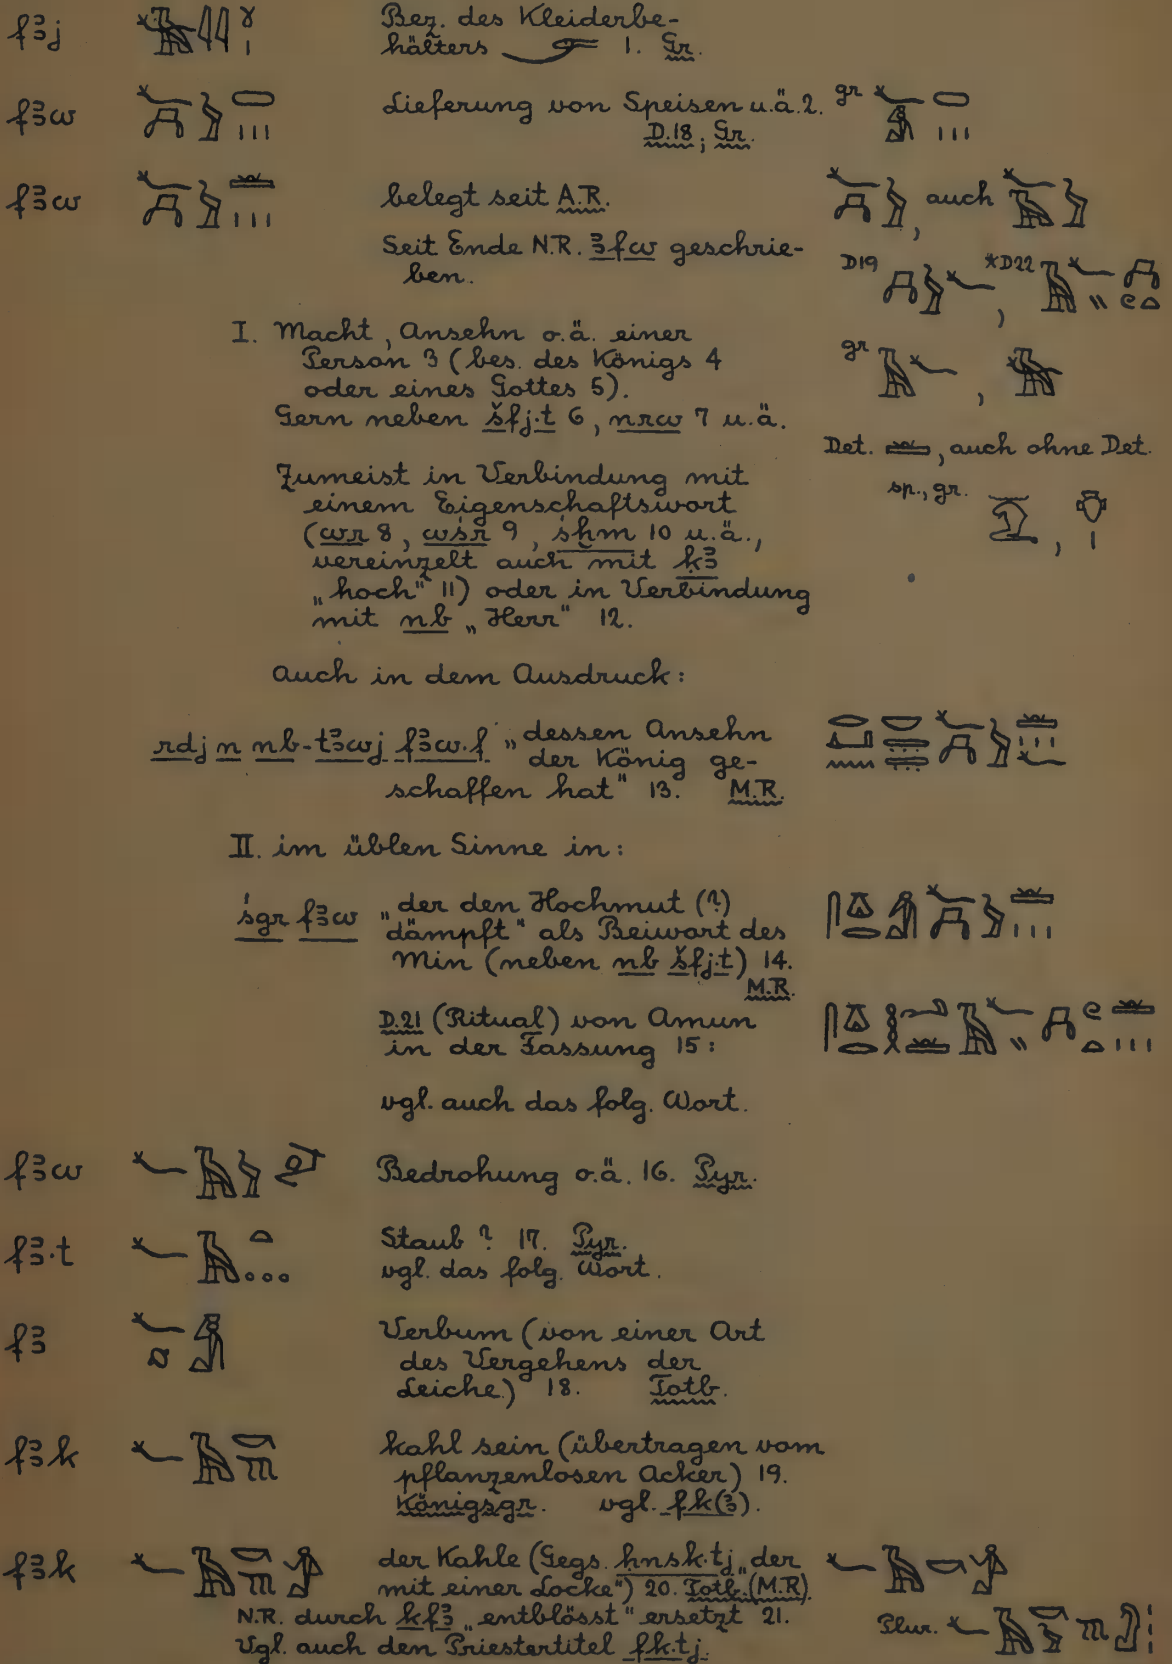 fꜣj Bez. des Kleiderbe-
hälters 1. Gr.
fꜣw Lieferung von Speisen u.ä. 2. gr
D.18; Gr.
fꜣw belegt seit A.R. , auch
Seit Ende N.R. ꜣfw geschrie-
ben. D19 , *D22
I. Macht, Ansehn o.ä. einer
Person 3 (bes. des Königs 4 gr ,
oder eines Gottes 5).
Gern neben šfj.t 6, nrw 7 u.ä.
Det. , auch ohne Det.
Zumeist in Verbindung mit
einem Eigenschaftswort sp., gr. ,
(wr 8, wśr 9, śḫm 10 u.ä.,
vereinzelt auch mit ḳꜣ
„hoch" 11) oder in Verbindung
mit nb „Herr" 12.
Auch in dem Ausdruck:
rdj n nb-tꜣwj fꜣw.f „dessen Ansehn
der König ge-
schaffen hat" 13. M.R.
II. im üblen Sinne in:
śgr fꜣw „der den Hochmut (?)
dämpft" als Beiwort des
Min (neben nb šfj.t) 14.
M.R.
D.21 (Ritual) von Amun
in der Fassung 15:
vgl. auch das folg. Wort.
fꜣw Bedrohung o.ä. 16. Pyr.
fꜣ.t Staub? 17. Pyr.
vgl. das folg. Wort.
fꜣ Verbum (von einer Art
des Vergehens der
Leiche) 18. Totb.
fꜣk kahl sein (übertragen vom
pflanzenlosen Acker) 19.
Königsgr. vgl. fk(ꜣ).
fꜣk der Kahle (Gegs. ḥnsk.tj „der
mit einer Locke") 20. Totb. (M.R)
N.R. durch kfꜣ „entblösst" ersetzt 21. Plur.
Vgl. auch den Priestertitel fk.tj.